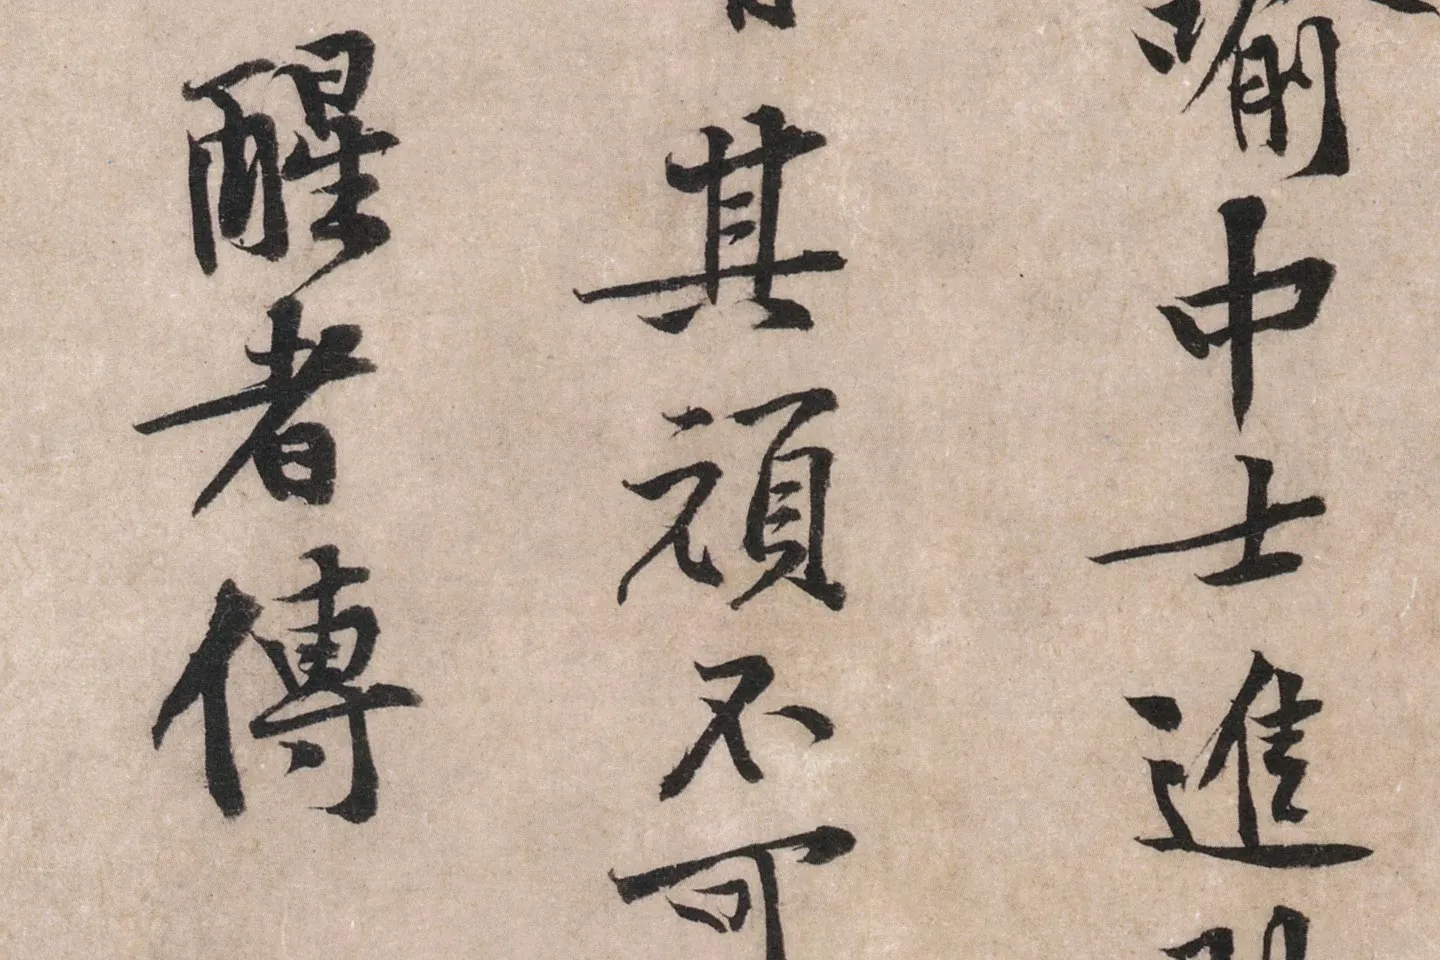 喻中士進
其頑不可
醒者傳